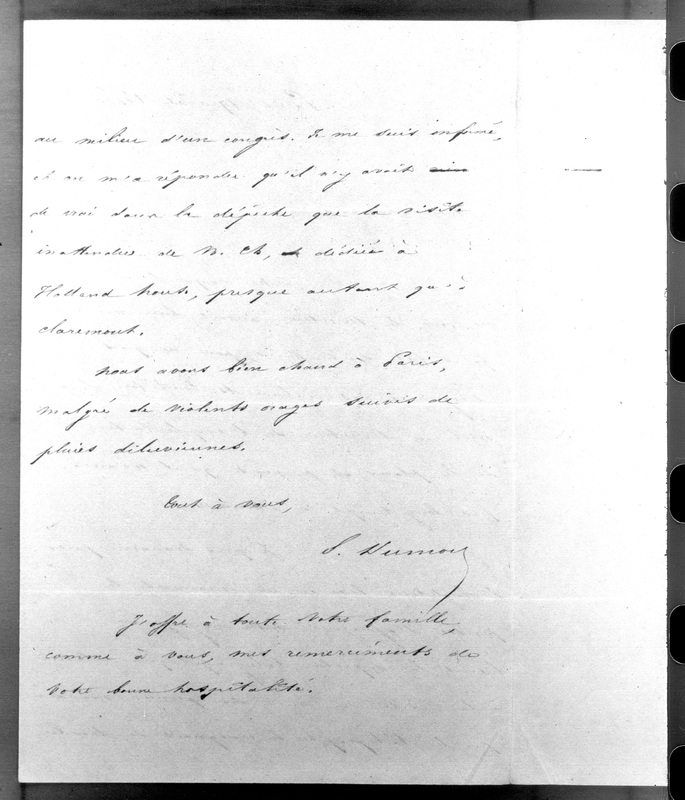 au milieu d'un congrès. Je me suis informé,
et on m'a répondu qu'il n'y avait rien
de vrai dans la dépêche que la visite
inattendue de N. Ch, dédiée à
Holland house, presque autant qu'à
claremont.
nous avons bien chaud à Paris,
malgré de violents orages suivis de
pluies diluviennes.
tout à vous,
S. Dumon
J'offre à toute votre famille,
comme à vous, mes remerciments de
votre bonne hospitalité.